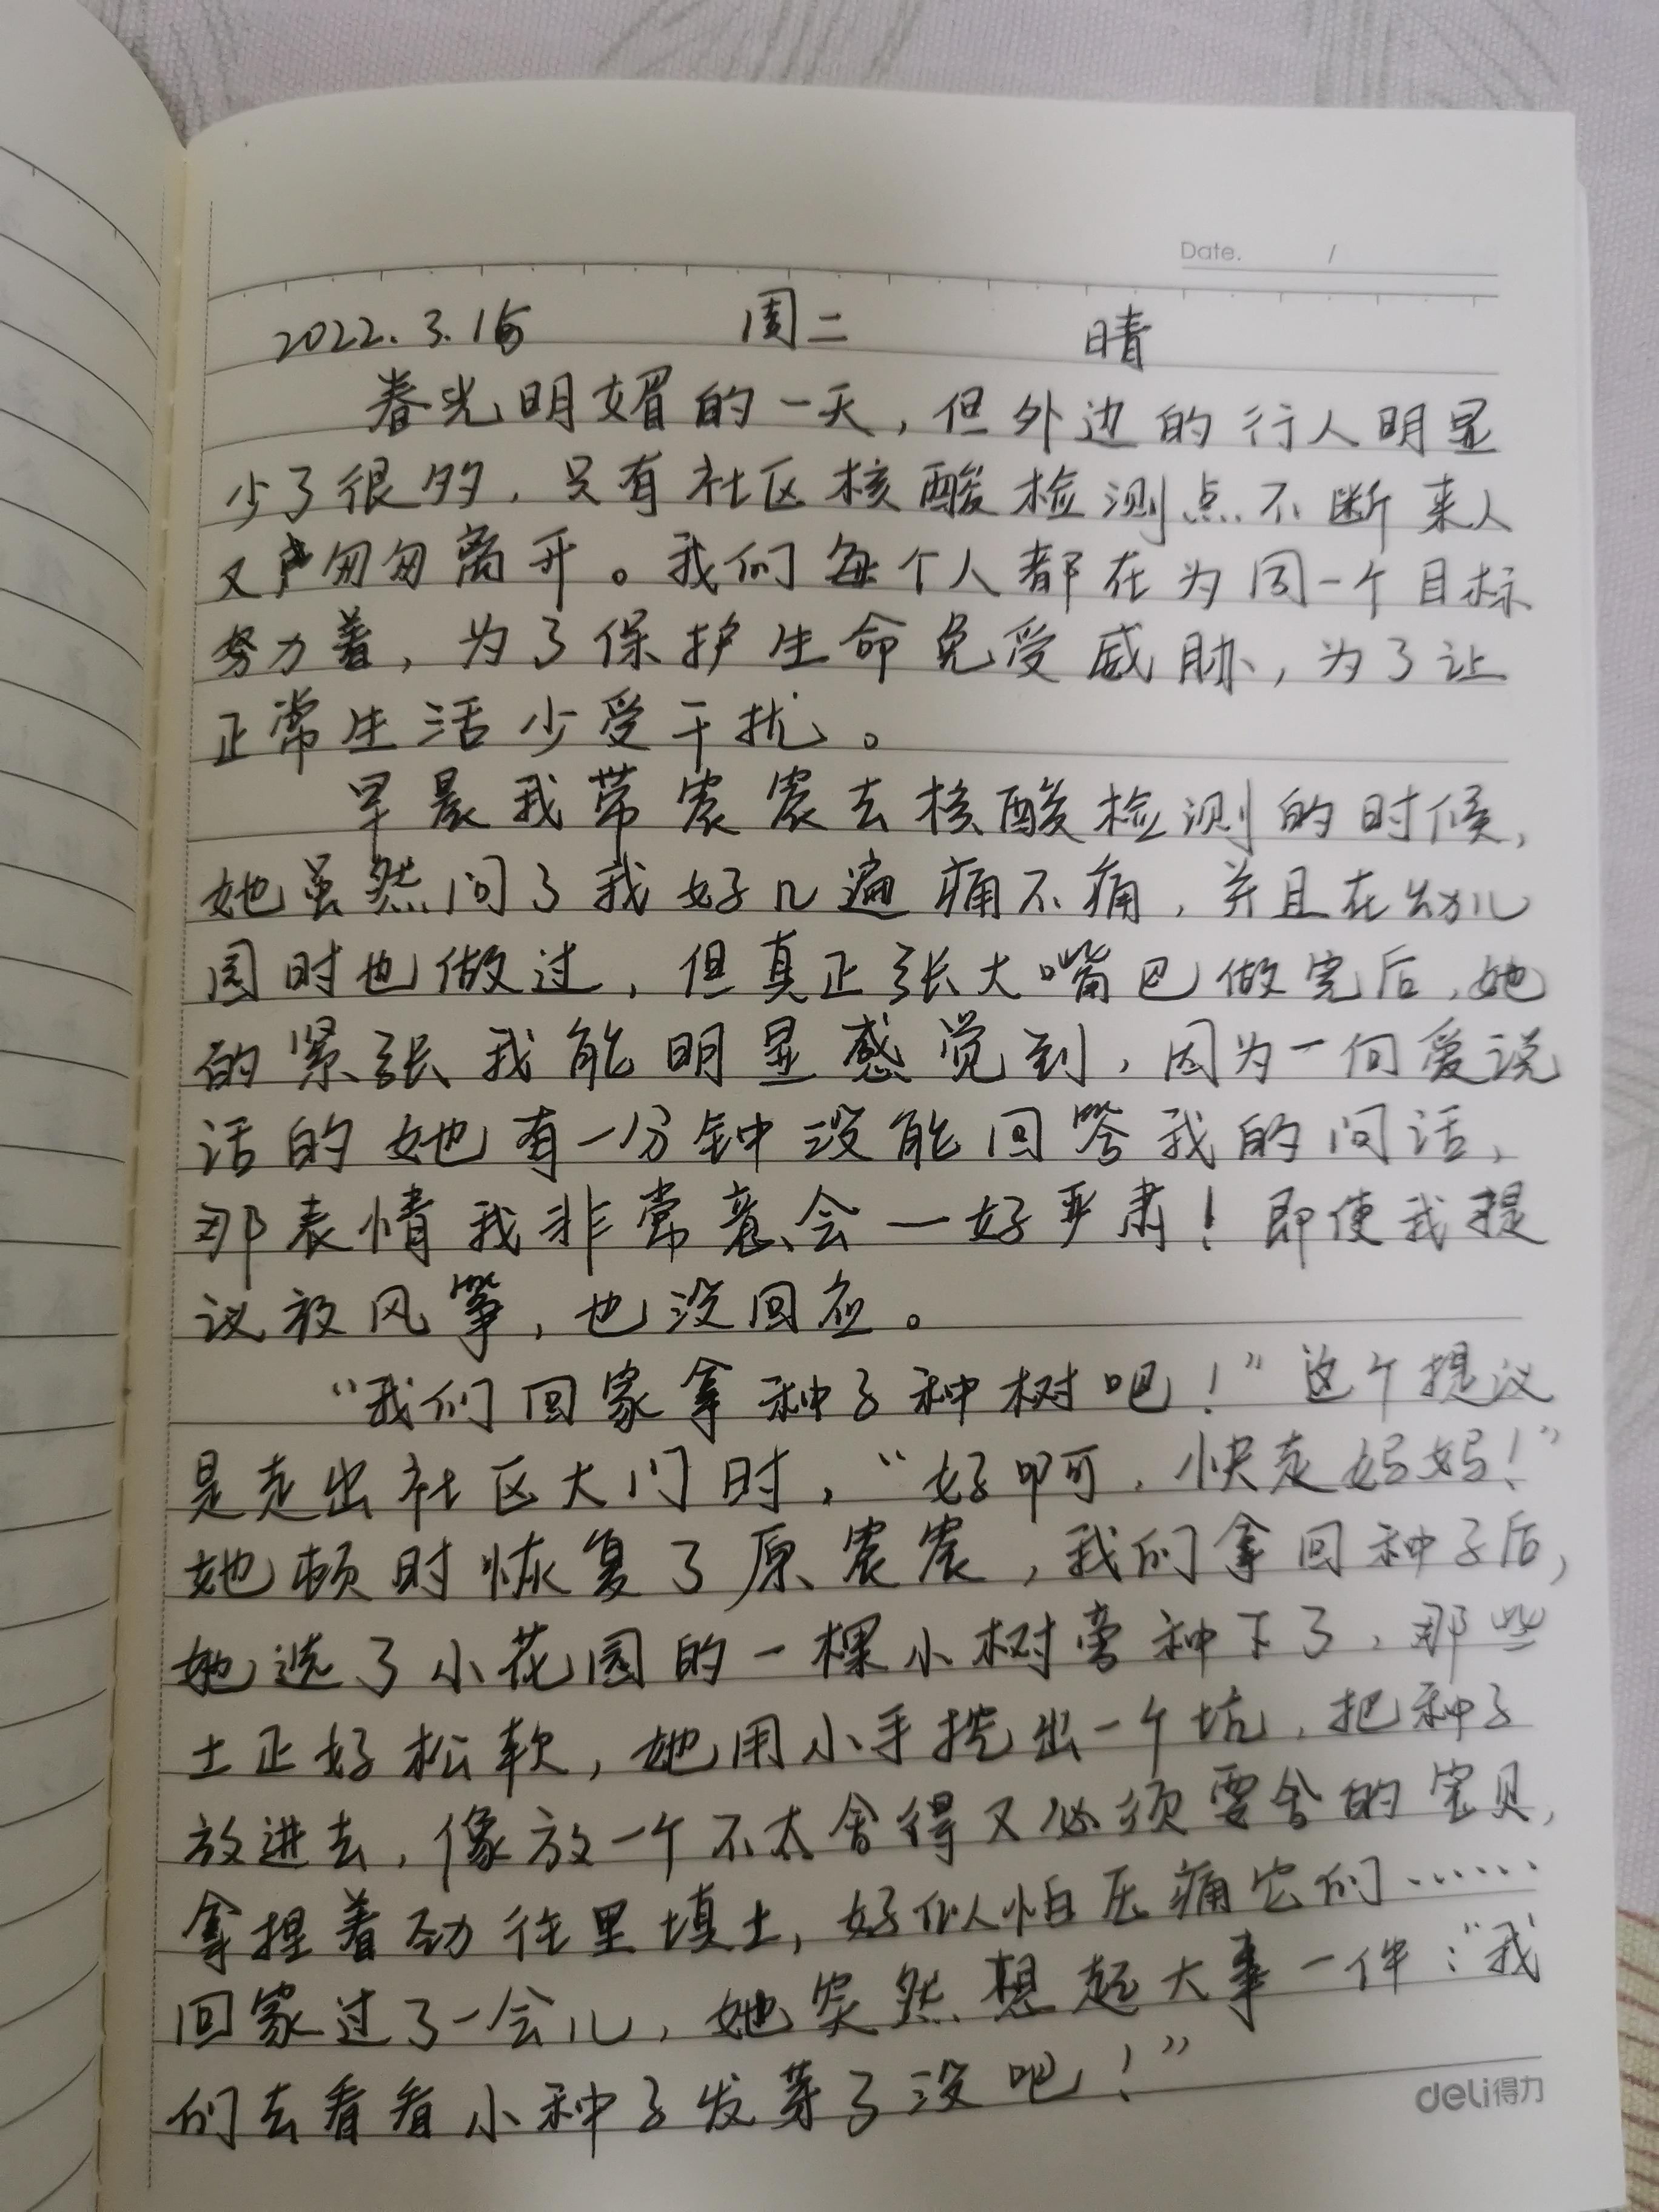 Date. /
2022.3.15 周二 晴
春光明媚的一天，但外边的行人明显
少了很多，只有社区核酸检测点不断来人
又匆匆离开。我们每个人都在为同一个目标
努力着，为了保护生命免受威胁，为了让
正常生活少受干扰。
早晨我带宸宸去核酸检测的时候，
她虽然问了我好几遍痛不痛，并且在幼儿
园时也做过，但真正张大嘴巴做完后，她
的紧张我能明显感觉到，因为一向爱说
话的她有一分钟没能回答我的问话，
那表情我非常意会一好严肃！即使我提
议放风筝，也没回应。
“我们回家拿种子种树吧！”这个提议
是走出社区大门时，“好啊，快走妈妈！”
她顿时恢复了原宸宸，我们拿回种子后，
她选了小花园的一棵小树旁种下了，那些
土正好松软，她用小手挖出一个坑，把种子
放进去，像放一个不太舍得又必须要舍的宝贝，
拿捏着劲往里填土，好似怕压痛它们……
回家过了一会儿，她突然想起大事一件：“我
们去看看小种子发芽了没吧！”
deli得力